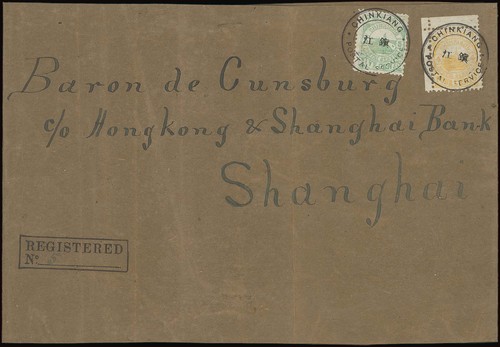 CHINKIANG
POSTAL SERVICE
CHINKIANG
POSTAL SERVICE
Baron de Cunsburg
c/o Hongkong & Shanghai Bank
Shanghai
REGISTERED
No.